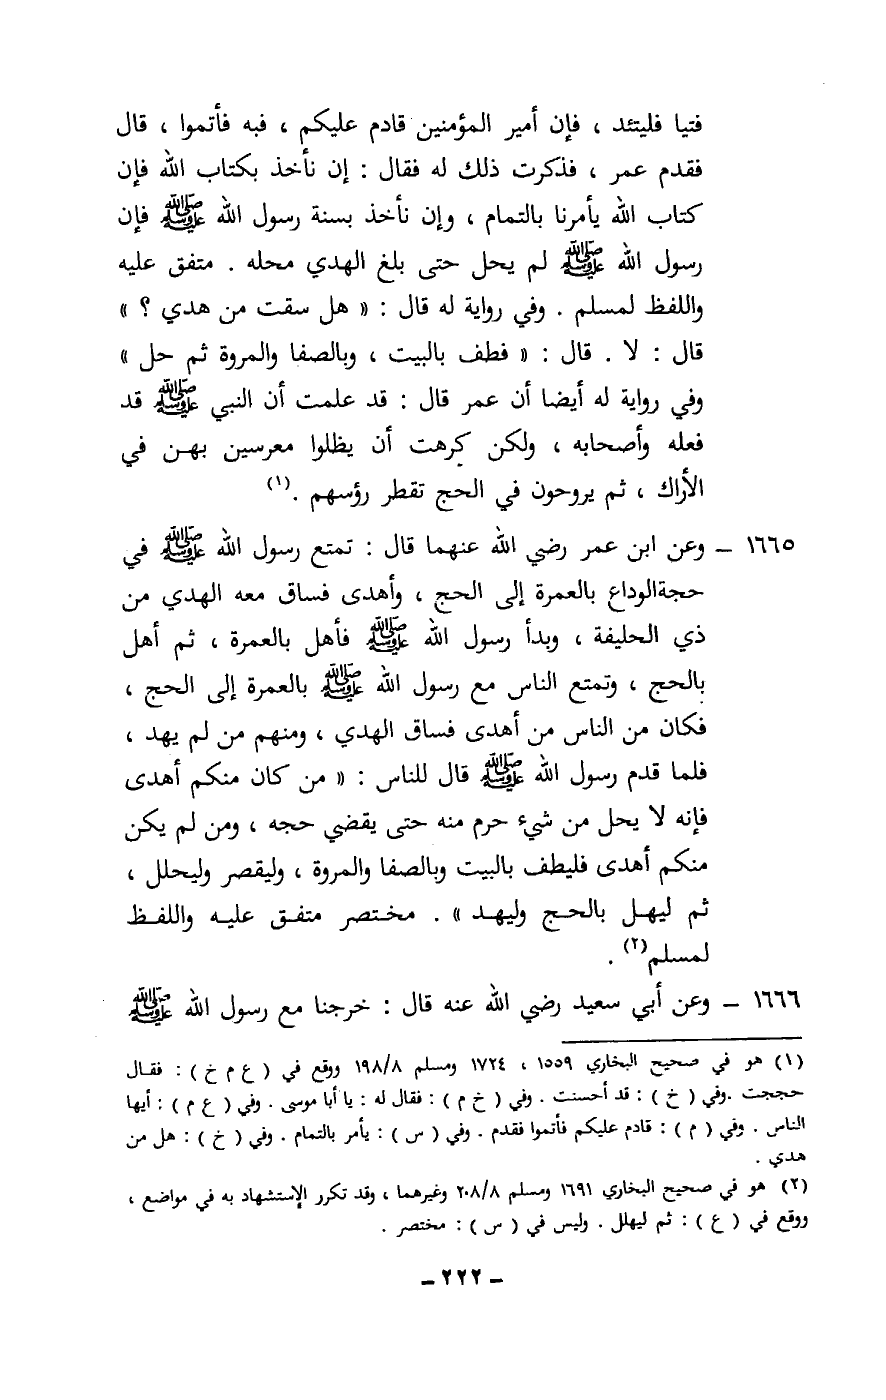 فتيا فليتئد ، فإن أمير المؤمنين قادم عليكم ، فبه فأتموا ، قال
فقدم عمر ، فذكرت ذلك له فقال : إن نأخذ بكتاب الله فإن
كتاب الله يأمرنا بالتمام ، وإن نأخذ بسنة رسول الله ﷺ فإن
رسول الله ﷺ لم يحل حتى بلغ الهدي محله . متفق عليه
واللفظ لمسلم . وفي رواية له قال : « هل سقت من هدي ؟ »
قال : لا . قال : « فطف بالبيت ، وبالصفا والمروة ثم حل »
وفي رواية له أيضا أن عمر قال : قد علمت أن النبي ﷺ قد
فعله وأصحابه ، ولكن كرهت أن يظلوا معرسين بهن في
الأراك ، ثم يروحون في الحج تقطر رؤسهم .(١)
١٦٦٥ – وعن ابن عمر رضي الله عنهما قال : تمتع رسول الله ﷺ في
حجةالوداع بالعمرة إلى الحج ، وأهدى فساق معه الهدي من
ذي الحليفة ، وبدأ رسول الله ﷺ فأهل بالعمرة ، ثم أهل
بالحج ، وتمتع الناس مع رسول الله ﷺ بالعمرة إلى الحج ،
فكان من الناس من أهدى فساق الهدي ، ومنهم من لم يهد ،
فلما قدم رسول الله ﷺ قال للناس : « من كان منكم أهدى
فإنه لا يحل من شيء حرم منه حتى يقضي حجه ، ومن لم يكن
منكم أهدى فليطف بالبيت وبالصفا والمروة ، وليقصر وليحلل ،
ثم ليهل بالحج وليهد » . مختصر متفق عليه واللفظ
لمسلم(٢) .
١٦٦٦ – وعن أبي سعيد رضي الله عنه قال : خرجنا مع رسول الله ﷺ
(١) هو في صحيح البخاري ١٥٥٩ ، ١٧٢٤ ومسلم ١٩٨/٨ ووقع في ( ع م خ ) : فقال
حججت .وفي ( خ ) : قد أحسنت . وفي ( خ م ) : فقال له : يا أبا موسى . وفي ( ع م ) : أيها
الناس . وفي ( م ) : قادم عليكم فأتموا فقدم . وفي ( س ) : يأمر بالتمام . وفي ( خ ) : هل من
هدي .
(٢) هو في صحيح البخاري ١٦٩١ ومسلم ٢٠٨/٨ وغيرهما ، وقد تكرر الإستشهاد به في مواضع ،
ووقع في ( ع ) : ثم ليهلل . وليس في ( س ) : مختصر .
– ٢٢٢ –